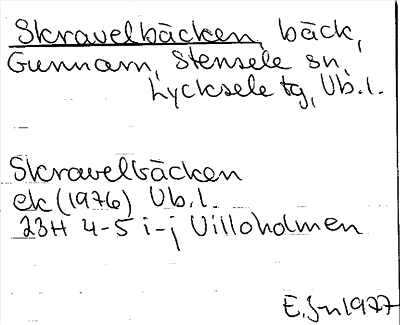 Skravelbäcken, bäck,
Gunnarn, Stensele sn,
Lycksele tg, Vb.l.
Skravelbäcken
ek (1976) Vb.l.
23H 4-5 i-j Villoholmen
E.Jn 1977